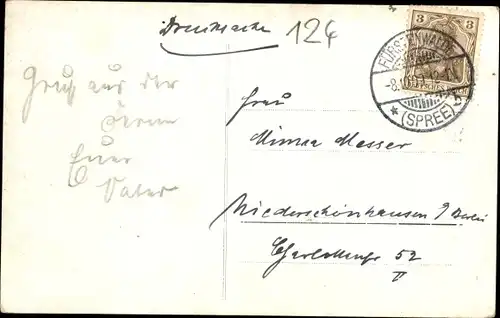 Drucksache
124
3
FÜRSTENWALDE
(SPREE)
Gruß aus der
Ferne
Euer
Vater
Frau
Minna Messer
Niederschönhausen b/ Berlin
Charlottenstr 52
II